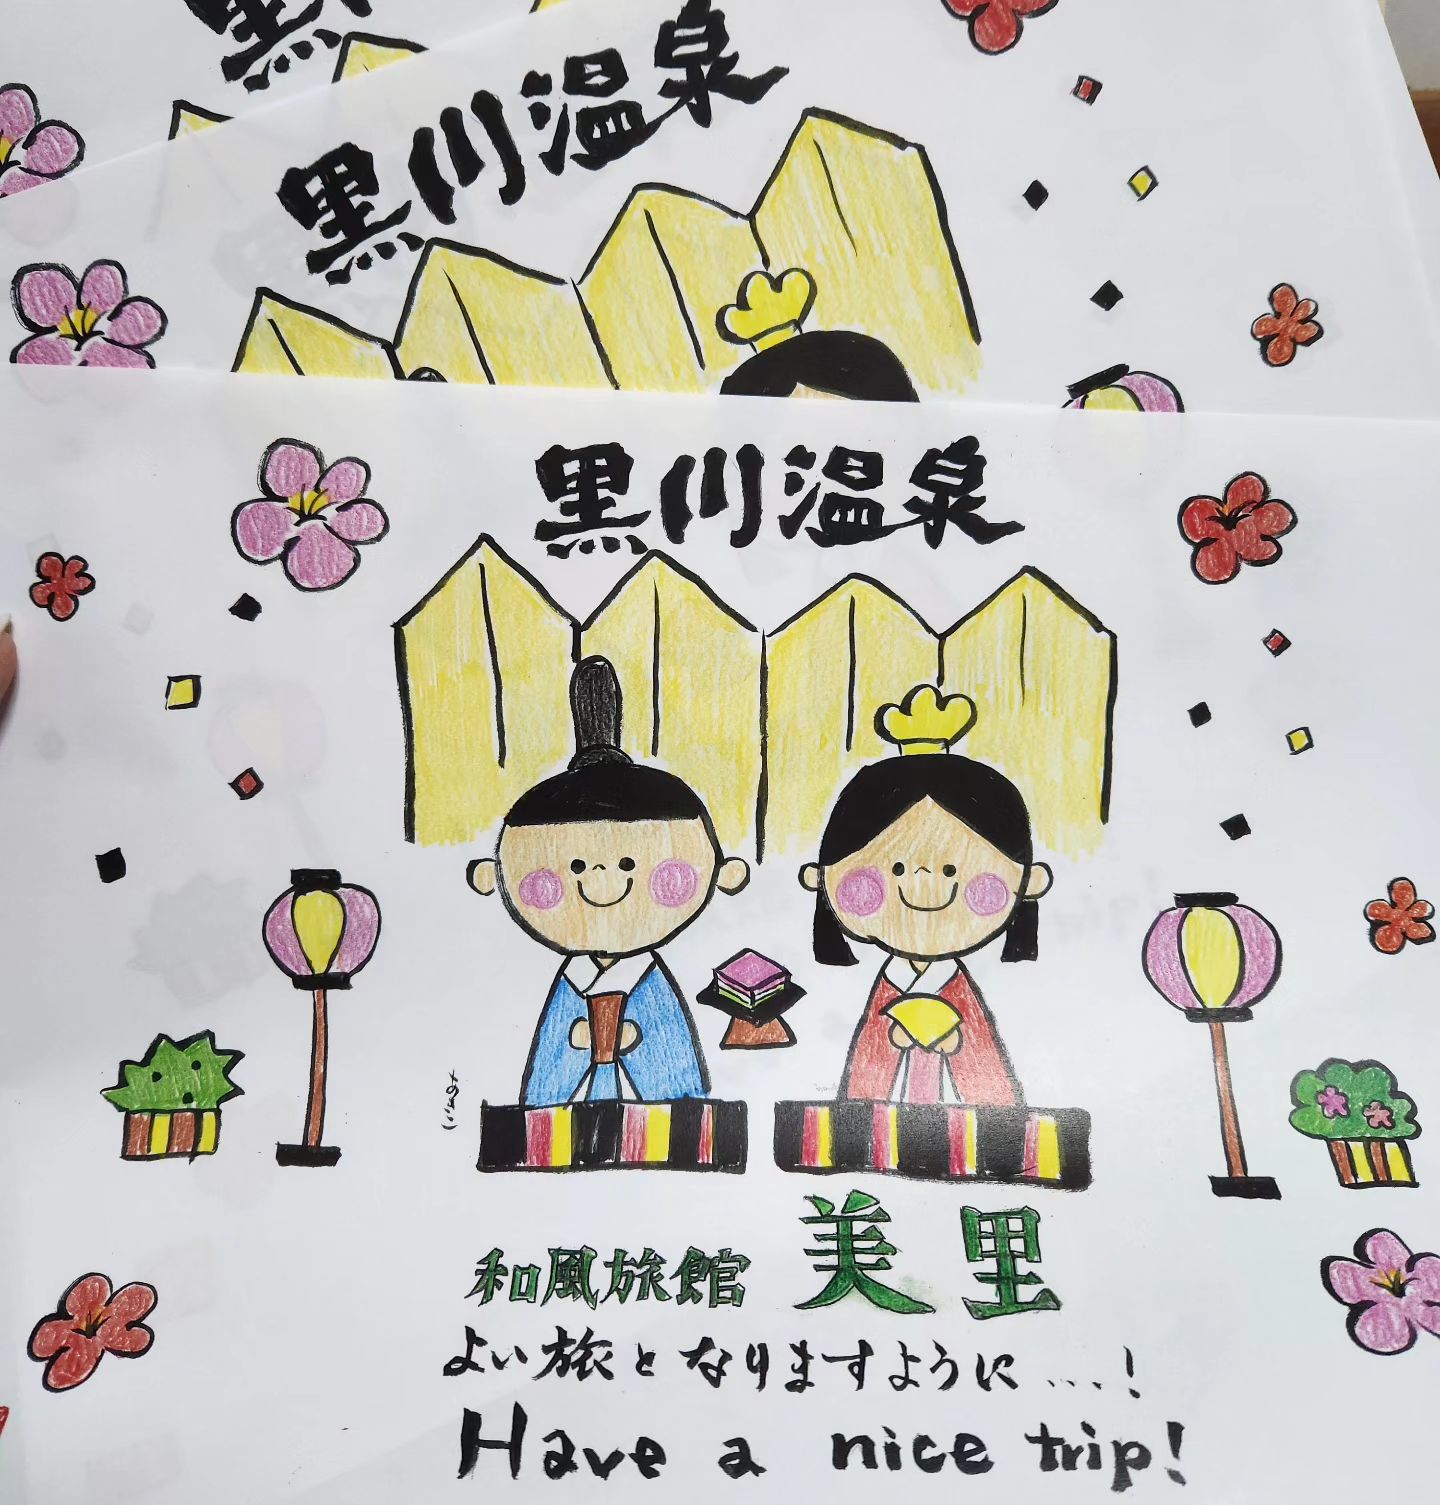 黒
黒川温泉
黒川温泉
和風旅館 美里
よい旅となりますように....!
Have a nice trip!